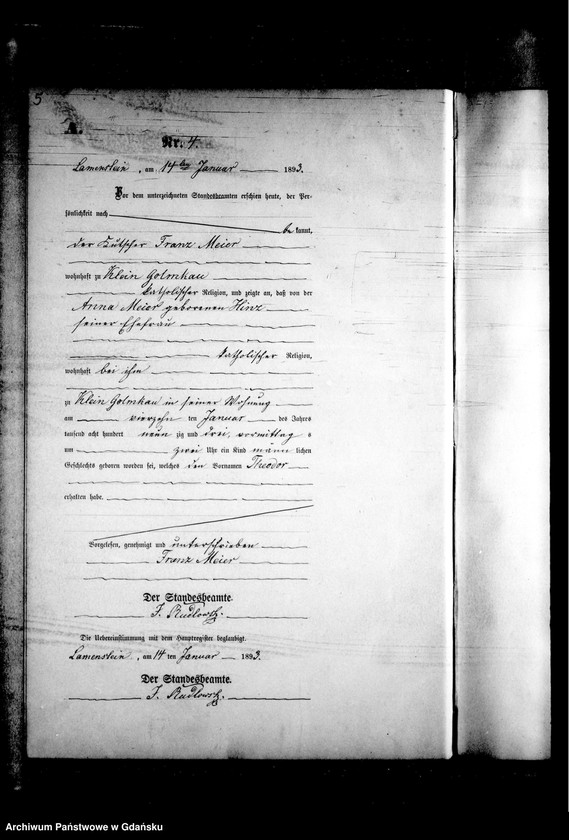 5
A.
Nr. 4.
Lamenstein, am 14ten Januar 1893.
Vor dem unterzeichneten Standesbeamten erschien heute, der Per-
sönlichkeit nach
bekannt,
der Kutscher Franz Meier
wohnhaft zu Klein Golmkau
katholischer Religion, und zeigte an, daß von der
Anna Meier geborenen Hinz
seiner Ehefrau
katholischer Religion,
wohnhaft bei ihm
zu Klein Golmkau in seiner Wohnung
am vierzehn ten Januar des Jahres
tausend acht hundert neun zig und drei, vormittag s
um zwei Uhr ein Kind männ lichen
Geschlechts geboren worden sei, welches den Vornamen Theodor
erhalten habe.
Vorgelesen, genehmigt und unterschrieben
Franz Meier
Der Standesbeamte.
Die Uebereinstimmung mit dem Hauptregister beglaubigt.
Lamenstein, am 14 ten Januar 1893.
Der Standesbeamte.
Archiwum Państwowe w Gdańsku